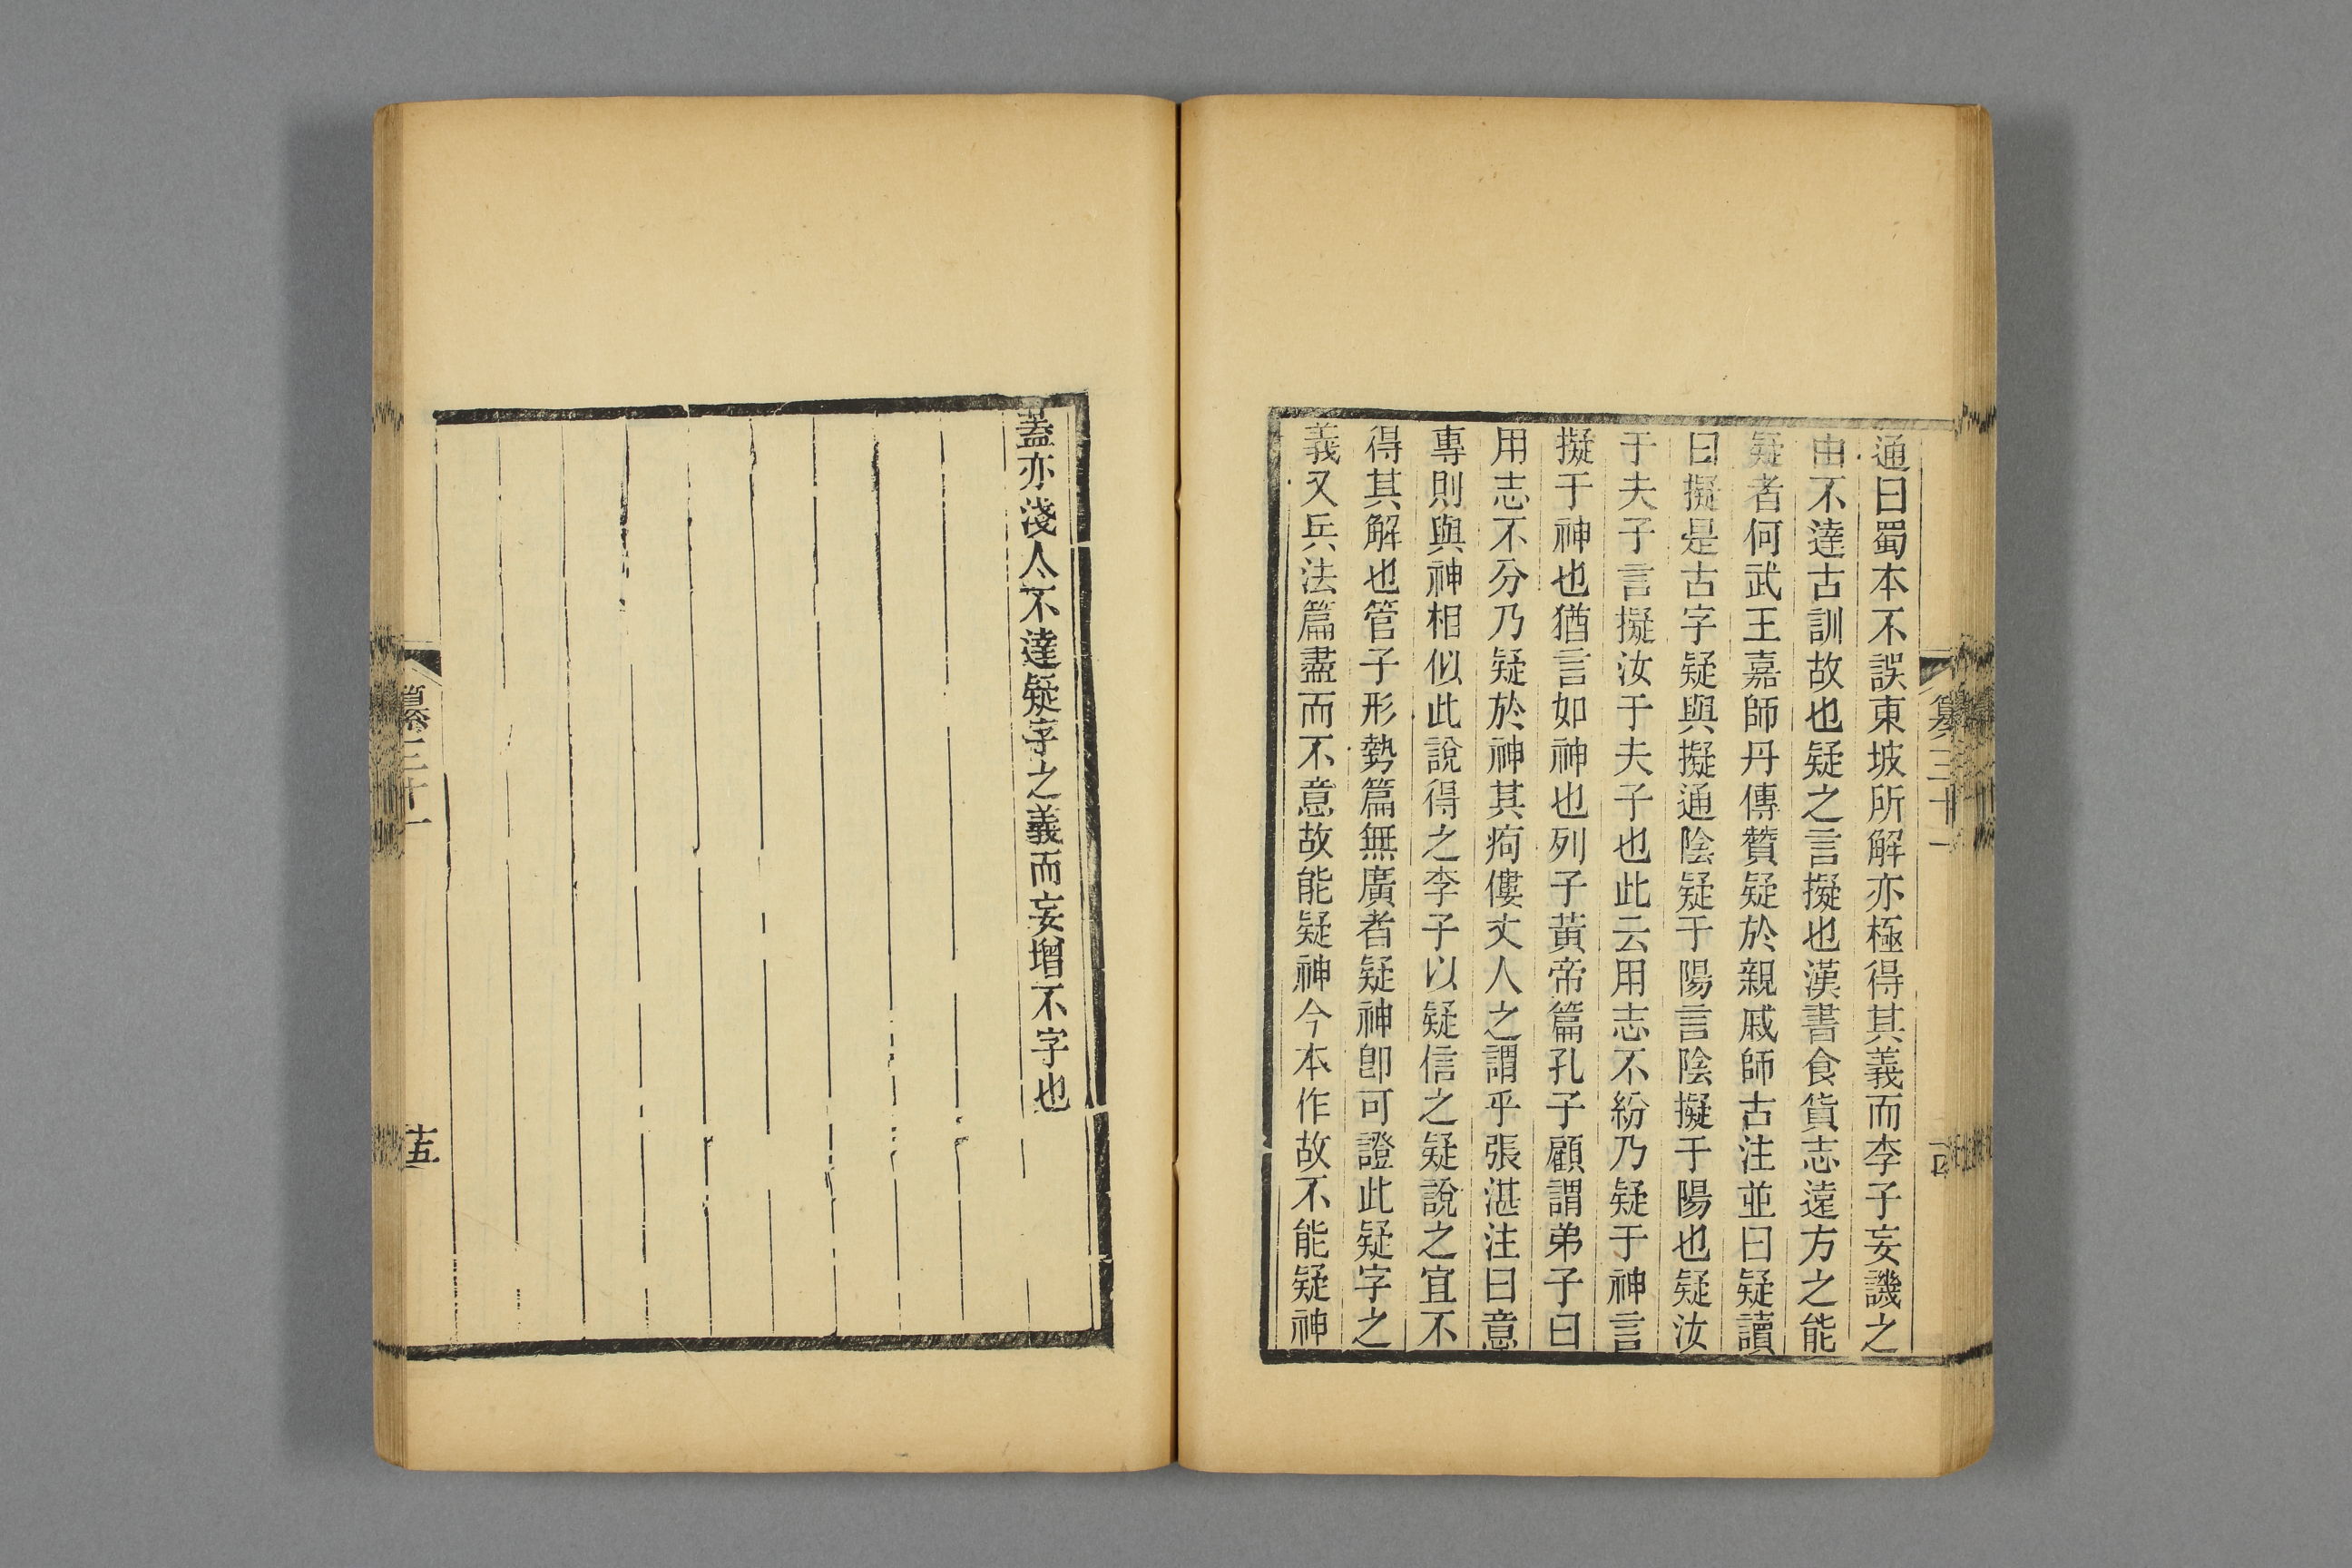 通曰蜀本不誤東坡所解亦極得其義而李子妄譏之
由不達古訓故也疑之言擬也漢書食貨志遠方之能
疑者何武王嘉師丹傳贊疑於親戚師古注並曰疑讀
曰擬是古字疑與擬通陰疑于陽言陰擬于陽也疑汝
于夫子言擬汝于夫子也此云用志不紛乃疑于神言
擬于神也猶言如神也列子黃帝篇孔子顧謂弟子曰
用志不分乃疑於神其痀僂丈人之謂乎張湛注曰意
專則與神相似此說得之李子以疑信之疑說之宜不
得其解也管子形勢篇無廣者疑神卽可證此疑字之
義又兵法篇盡而不意故能疑神今本作故不能疑神
蓋亦淺人不達疑字之義而妄增不字也
纂三十一
十五